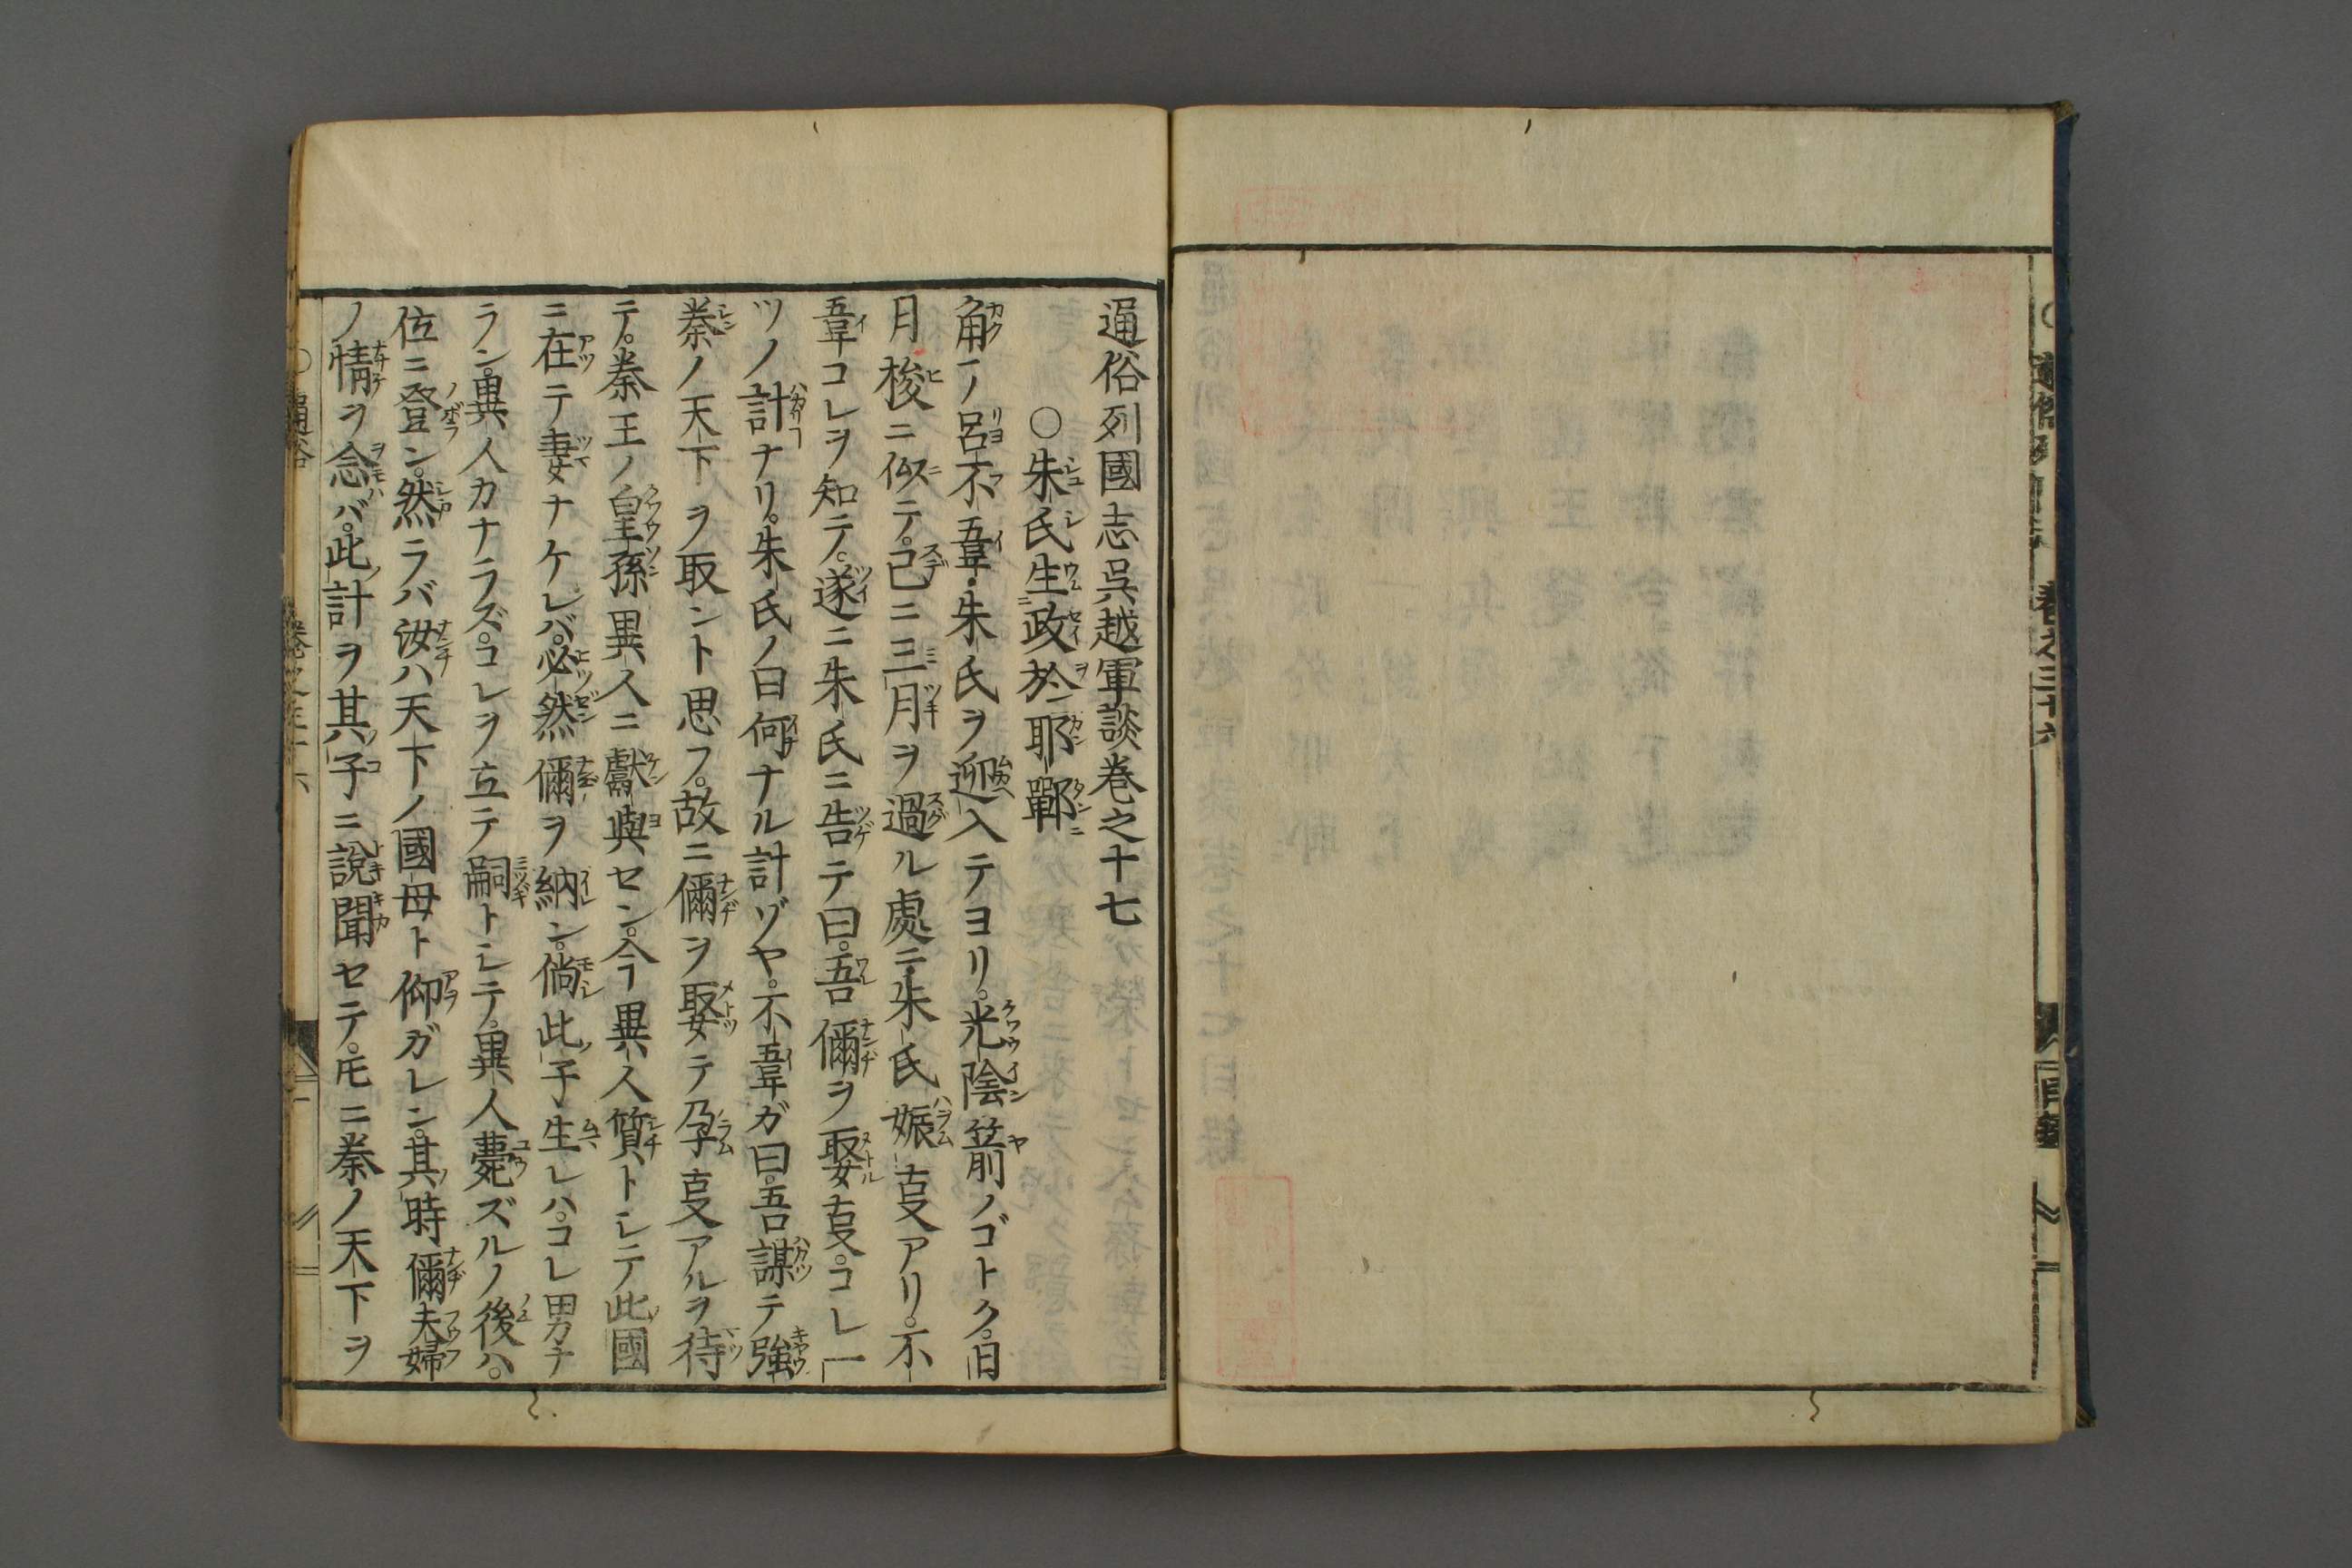 通俗列國志呉越軍談巻之十七
○朱氏生政於邯鄲
角ノ呂不韋朱氏ヲ迎入テヨリ。光陰箭ノゴトク。日
月梭ニ似テ。已ニ三月ヲ過ル處ニ。朱氏娠ヿアリ。不
韋コレヲ知テ。遂ニ朱氏ニ告テ曰。吾儞ヲ娶叓。コレ一
ツノ計ナリ。朱氏ノ曰何ナル計ゾヤ。不韋ガ曰。吾謀テ強
秦ノ天下ヲ取ント思フ。故ニ儞ヲ娶テ孕叓アルヲ待
テ。秦王ノ皇孫異人ニ獻與セン。今異人質トシテ此國
ニ在テ妻ナケレバ。必然儞ヲ納ン。倘此子生レハ。コレ男ナ
ラン。異人カナラズ。コレヲ立テ嗣トシテ。異人薨ズルノ後ハ。
位ニ登ン。然ラバ汝ハ天下ノ國母ト仰ガレン。其時儞夫婦
ノ情ヲ念バ。此計ヲ其子ニ說聞セテ。厇ニ秦ノ天下ヲ